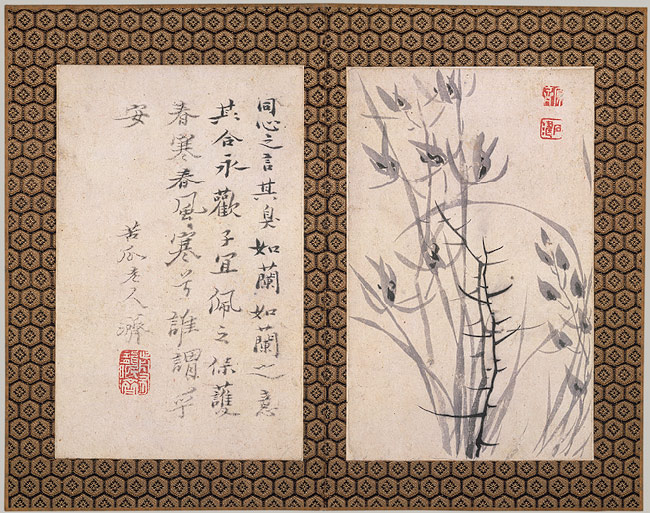 同心之言其臭如蘭如蘭之意
其合永歡子宜佩之保護
春寒春風寒兮誰謂
安
苦瓜老人濟